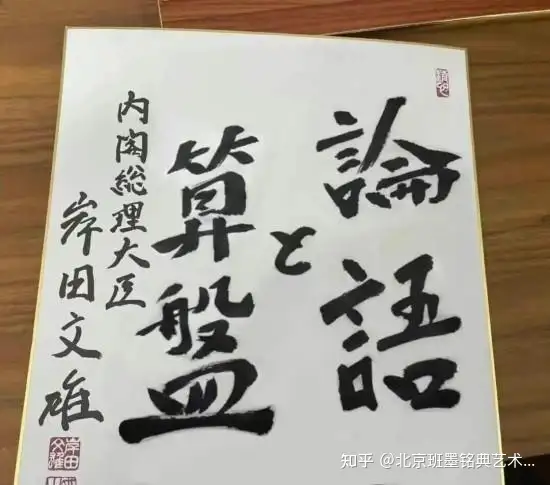 論語
と
算盤
内閣総理大臣
岸田文雄
岸田
文雄
知乎 @北京班墨铭典艺术...